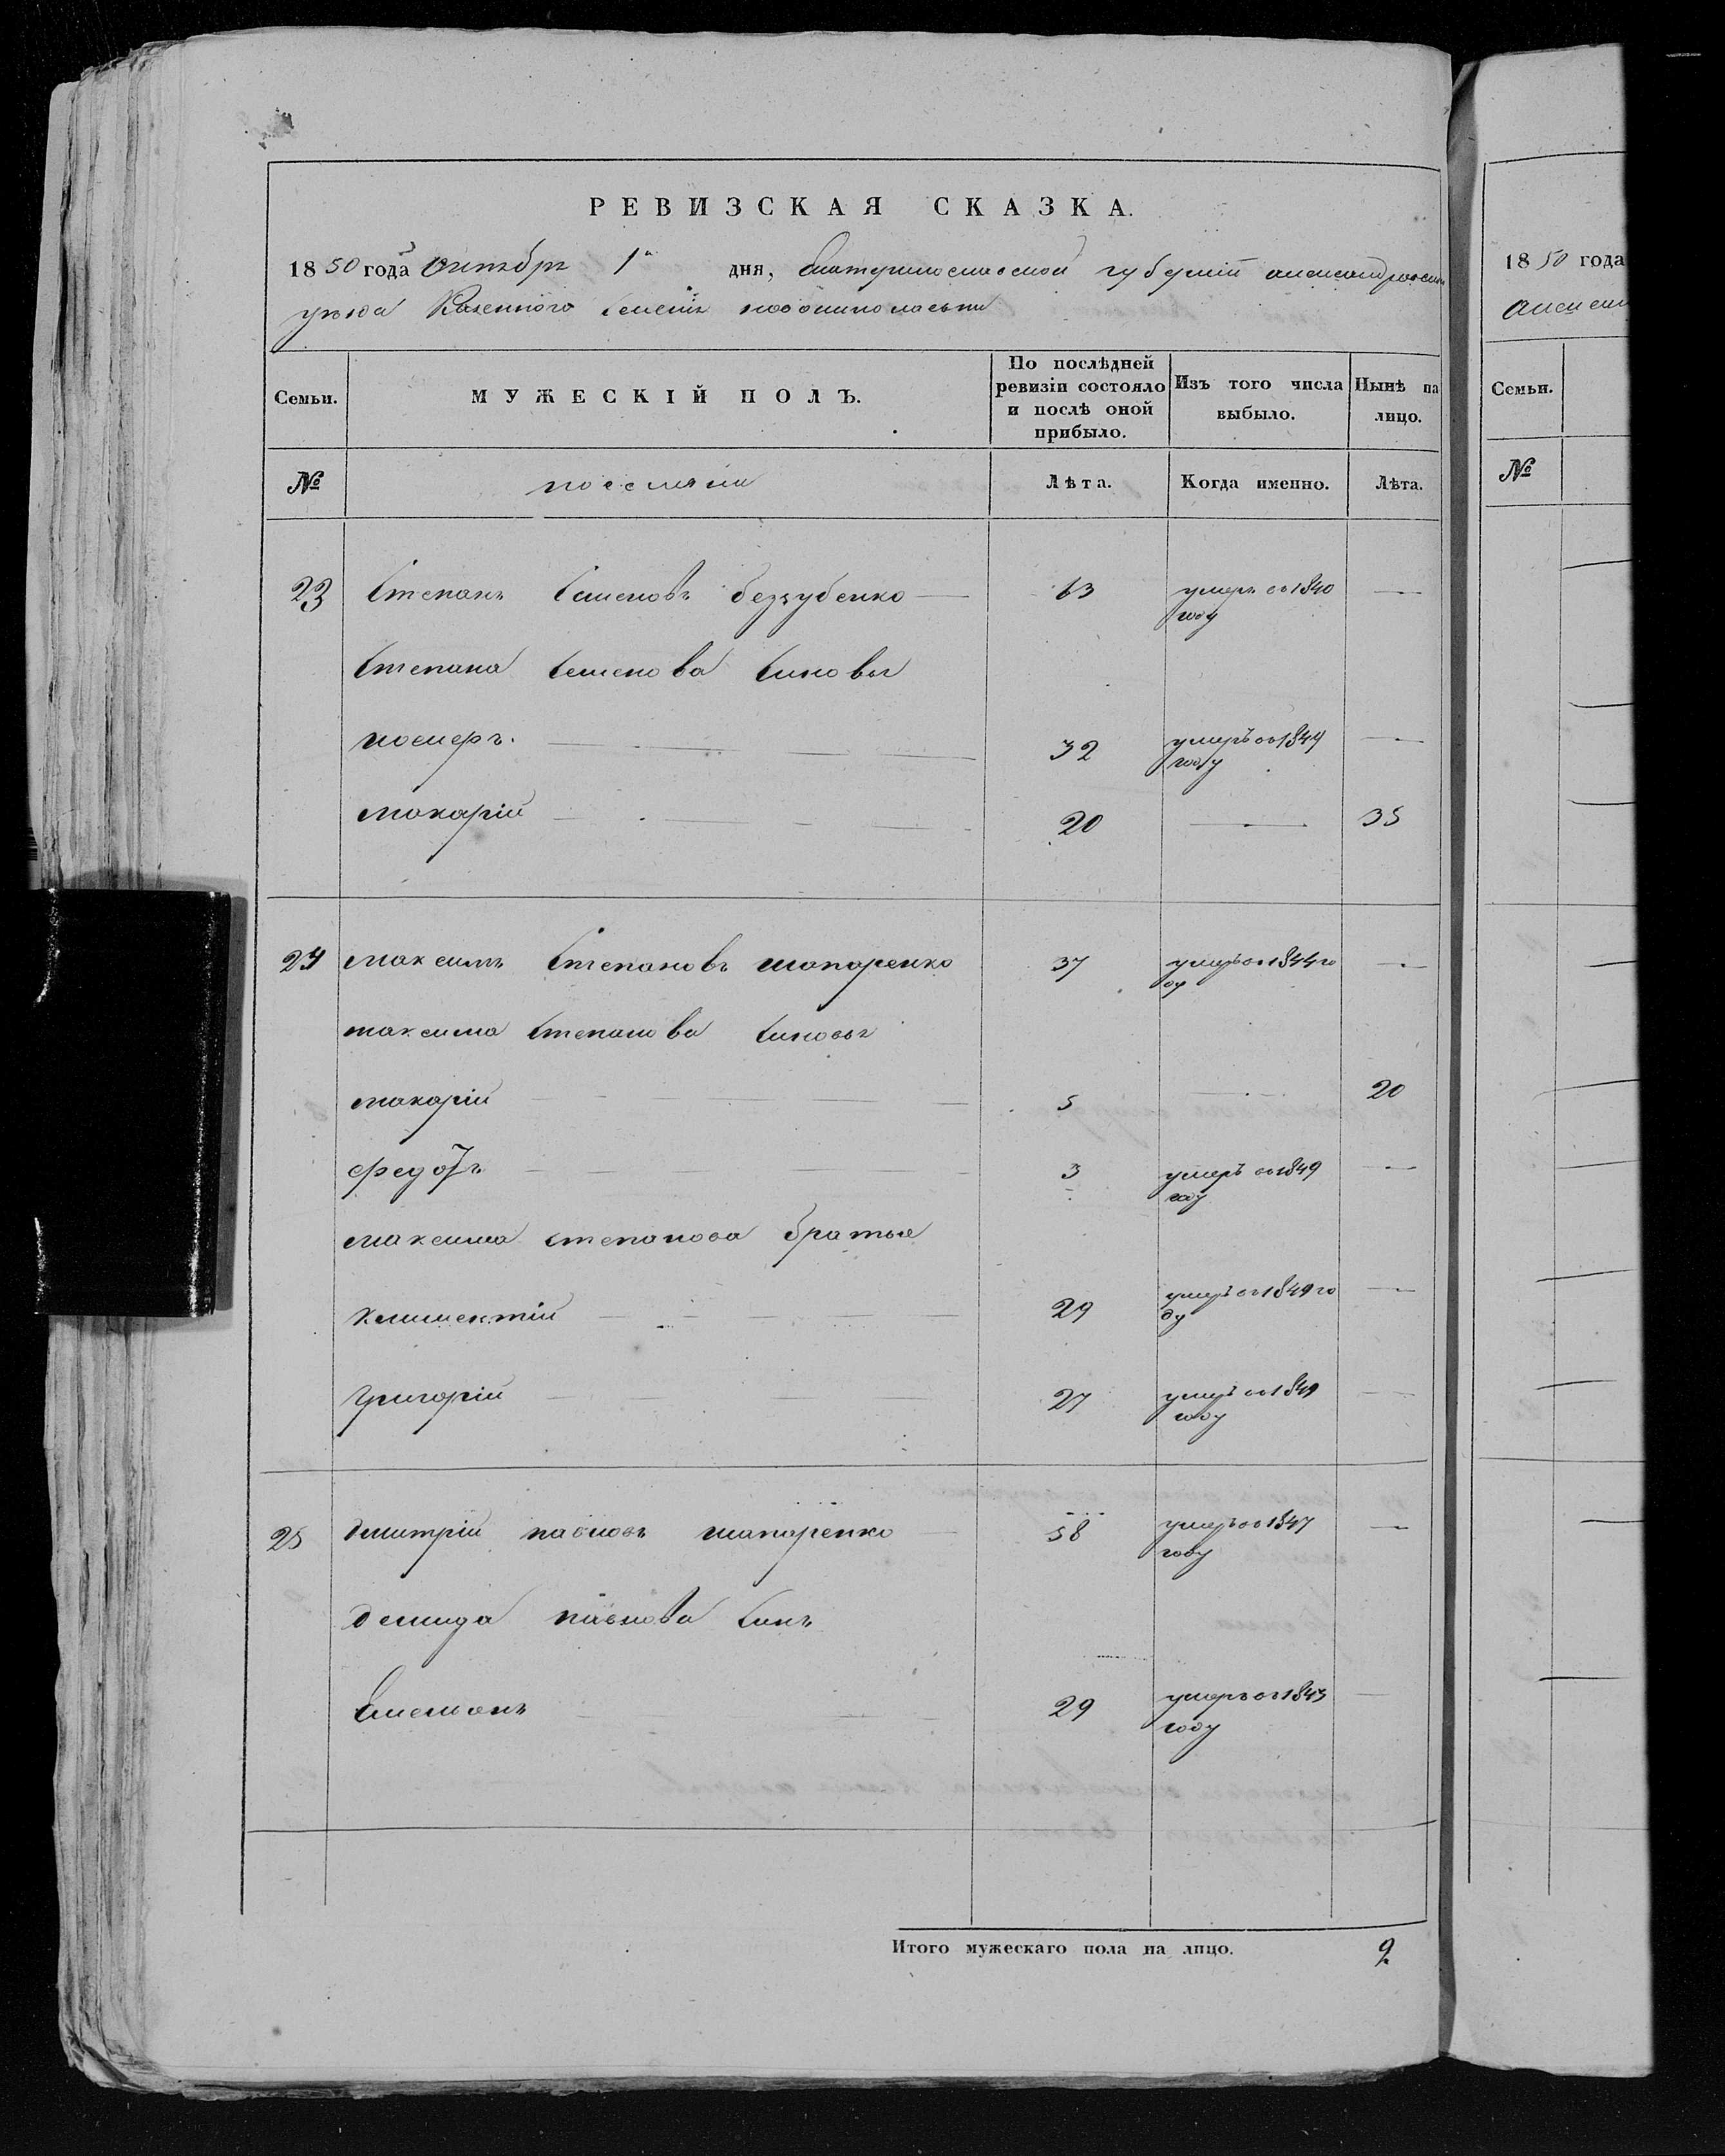 РЕВИЗСКАЯ СКАЗКА.
1850 года Октября 1го дня, Екатеринославской губернии Александровского
уезда Казенного Селения новониколаевки
Семьи. МУЖЕСКІЙ ПОЛЪ. По послѣдней ревизіи состояло и послѣ оной прибыло. Изъ того числа выбыло. Нынѣ на лицо.
№ поселяни Лѣта. Когда именно. Лѣта.
23 Степанъ Семеновъ беззубенко 63 умеръ во 1840 году —
Степана Семенова Синовы
32 умеръ во 1849 году —
макарій 20 — 35
24 максимъ Степановъ шапаренко 37 умеръ во 1844 году —
максима Степанова Синовы
макарій 5 — 20
федотъ 3 умеръ во 1849 году —
максима степанова братья
климентій 29 умеръ во 1849 году —
григорій 27 умеръ во 1849 году —
25 дмитрій павловъ шапаренко 58 умеръ во 1847 году —
демида павлова Синъ
Емельянъ 29 умеръ во 1843 году —
Итого мужескаго пола на лицо. 2
18 50 года
Семьи.
№